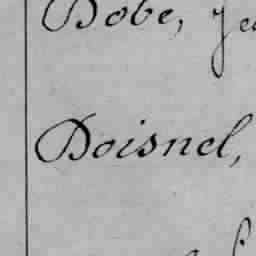 Dobe, Je
Doisnel,